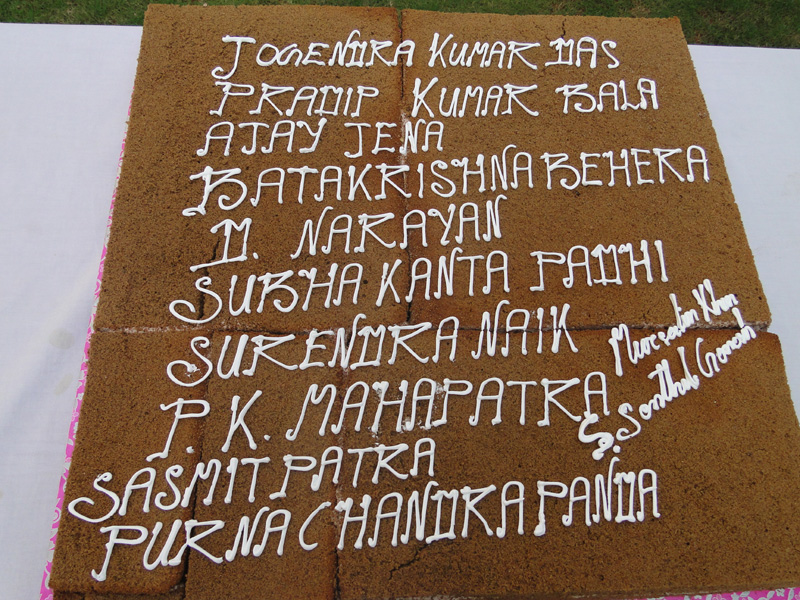 JOGENDRA KUMAR DAS
PRADIP KUMAR BALA
AJAY JENA
BATAKRISHNA BEHERA
D. NARAYAN
SUBHA KANTA PADHI
SURENDRA NAIK
P. K. MAHAPATRA
SASMIT PATRA
PURNA CHANDRA PANDA
Khan
S.